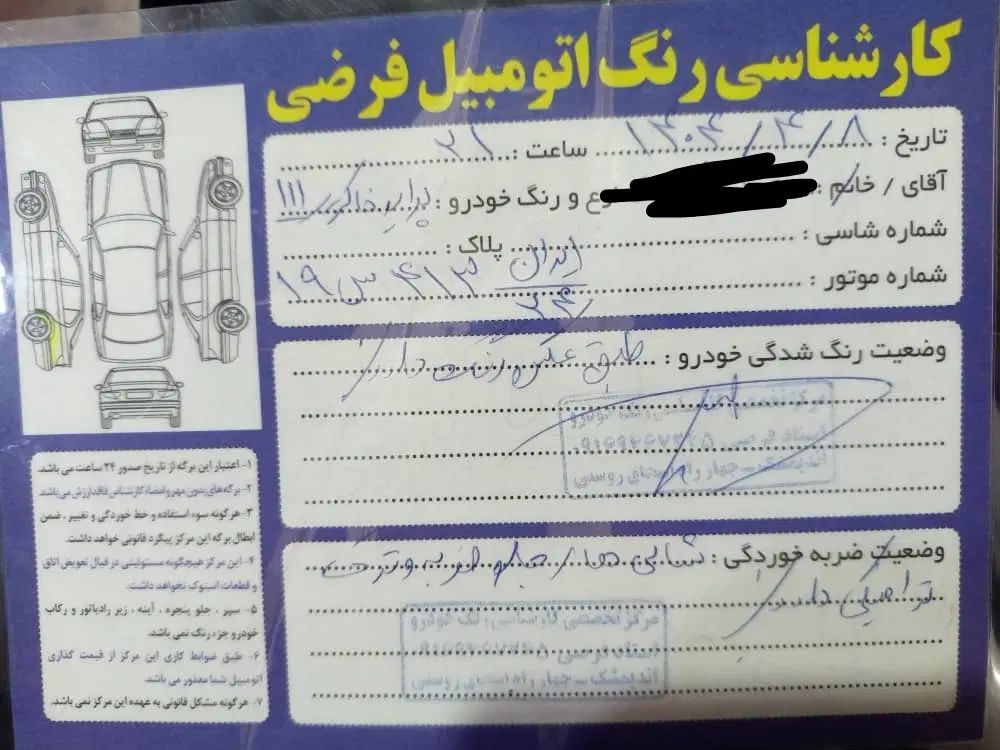 کارشناسی رنگ اتومبیل فرضی
تاریخ : ۱۴۰۴/۴/۸ ساعت : ۲۱
آقای / خانم : وع و رنگ خودرو : پراید خاکستری ۱۱۱
شماره شاسی : پلاک :
شماره موتور : ایران ۲۴ ۴۱۳ س ۱۹
وضعیت رنگ شدگی خودرو : طبق عکس رنگ دارد
مرکز تخصصی کارشناسی رنگ خودرو
استاد فرضی
اندیمشک - چهار راه
وضعیت ضربه خوردگی : شاسی های جلو ضربه و ترک
دارد
مرکز تخصصی کارشناسی رنگ خودرو
استاد فرضی
اندیمشک - چهار راه
۱- اعتبار این برگه از تاریخ صدور ۲۴ ساعت می باشد.
۲- برگه های بدون مهر و امضاء کارشناس فاقد ارزش می باشد
۳- هرگونه سوء استفاده و خط خوردگی و تغییر ، ضمن
ابطال برگه این مرکز پیگرد قانونی خواهد داشت.
۴- این مرکز هیچگونه مسئولیتی در قبال تعویض اتاق
و قطعات استوک نخواهد داشت.
۵- سپر ، جلو پنجره ، آینه ، زیر رادیاتور و رکاب
خودرو جزء رنگ نمی باشد.
۶- طبق ضوابط کاری این مرکز از قیمت گذاری
اتومبیل شما معذور می باشد.
۷- هرگونه مشکل قانونی به عهده این مرکز نمی باشد.